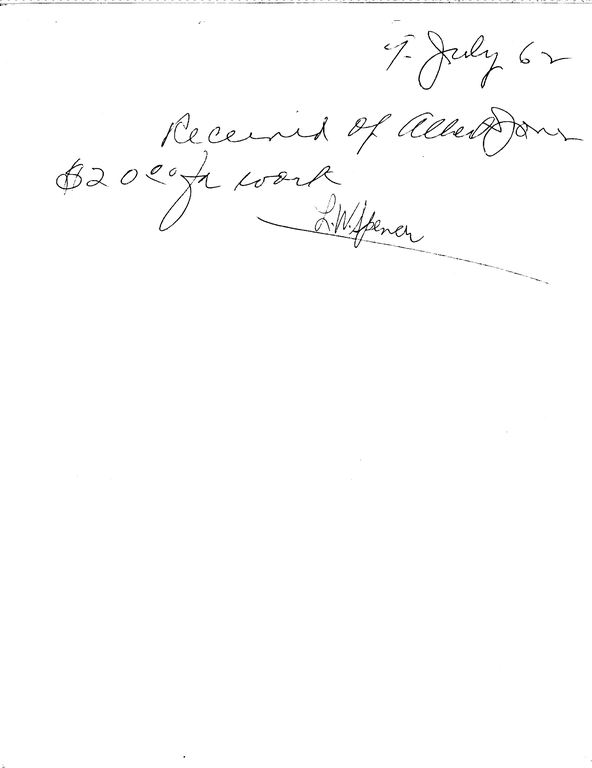 July 62
Received of Albert Jones
$20.00 for work
L.W. Spencer